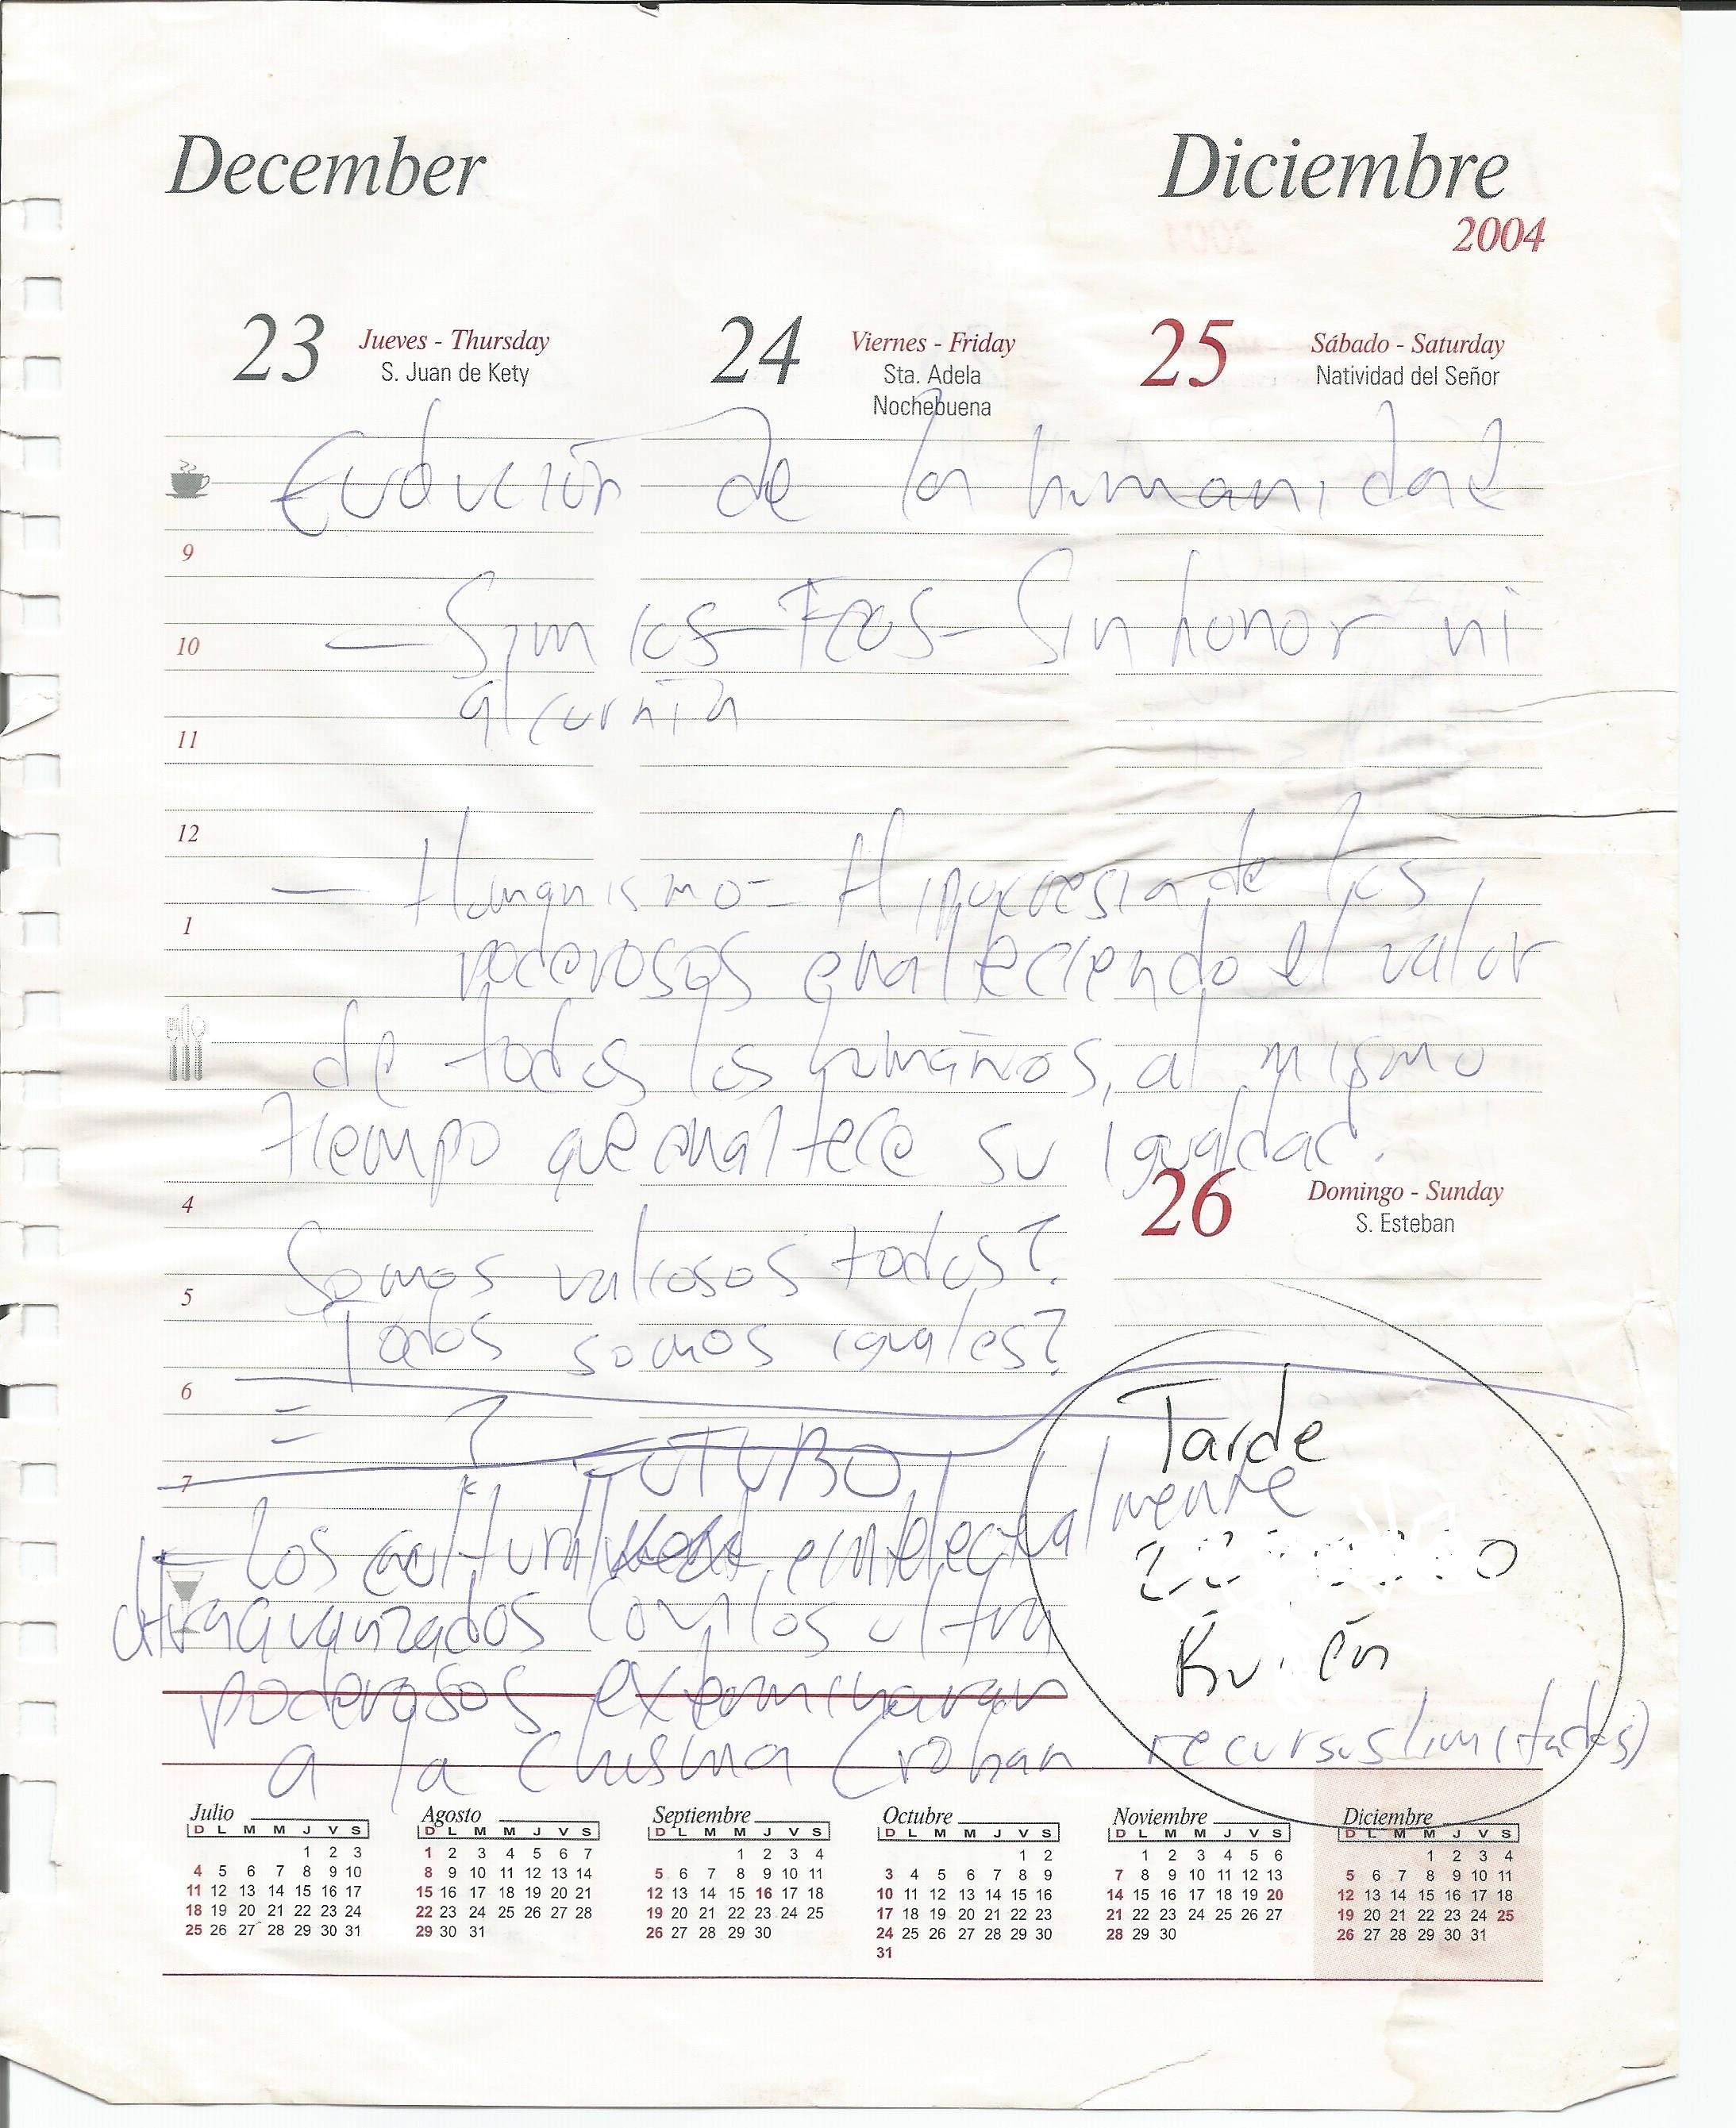 December Diciembre
2004
23 Jueves - Thursday 24 Viernes - Friday 25 Sábado - Saturday
S. Juan de Kety Sta. Adela Natividad del Señor
Nochebuena
Evolución de la humanidad
9
— Simios - Feos - Sin honor ni
10
alcurnia
11
12
— Humanismo = Hipocresia de los
1
poderosos enalteciendo el valor
de todos los humanos, al mismo
tiempo que enaltece su igualdad.
26 Domingo - Sunday
S. Esteban
4
Somos valiosos todos?
5
Todos somos iguales?
6
= ?
FUTURO
Tarde
7
— Los cultural e intelectualmente
ultraavanzados con los ultra
poderosos exterminaran
a la chusma (roban recursos limitados)
Julio Agosto Septiembre Octubre Noviembre Diciembre
D L M M J V S D L M M J V S D L M M J V S D L M M J V S D L M M J V S D L M M J V S
1 2 3 1 2 3 4 5 6 7 1 2 3 4 1 2 1 2 3 4 5 6 1 2 3 4
4 5 6 7 8 9 10 8 9 10 11 12 13 14 5 6 7 8 9 10 11 3 4 5 6 7 8 9 7 8 9 10 11 12 13 5 6 7 8 9 10 11
11 12 13 14 15 16 17 15 16 17 18 19 20 21 12 13 14 15 16 17 18 10 11 12 13 14 15 16 14 15 16 17 18 19 20 12 13 14 15 16 17 18
18 19 20 21 22 23 24 22 23 24 25 26 27 28 19 20 21 22 23 24 25 17 18 19 20 21 22 23 21 22 23 24 25 26 27 19 20 21 22 23 24 25
25 26 27 28 29 30 31 29 30 31 26 27 28 29 30 24 25 26 27 28 29 30 28 29 30 26 27 28 29 30 31
31